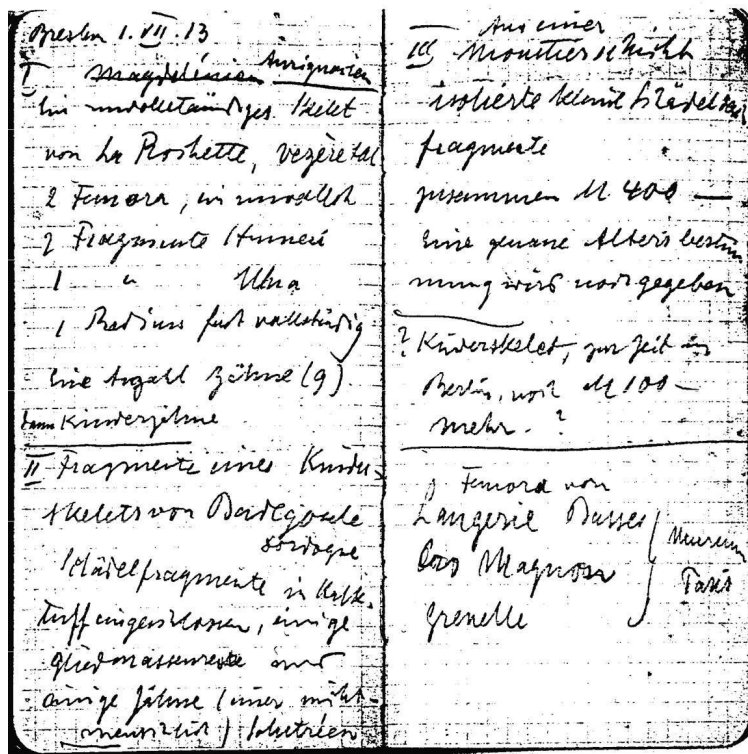 Breslau 1. VII. 13
I Magdalénien Aurignacien
Ein unvollständiges Skelet
von La Rochette, Vezèretal
2 Femora, ein unvollst
2 Fragmente Humeri
1 " Ulna
1 Radius fast vollständig
Eine Anzahl Zähne (9)
dann Kinderzähne
II Fragmente eines Kinder-
skelets von Badegoule
Dordogne
Schädelfragmente in Kalk-
tuff eingeschlossen, einige
Gliedmassenreste und
einige Zähne (einer nicht
menschlich) Solutréen
Aus einer
III Moustierschicht
isolierte kleine Schädel
fragmente
zusammen M 400 —
Eine genaue Altersbestim
mung wird noch gegeben
? Kinderskelet, zur Zeit in
Berlin, noch M 100 —
mehr. ?
Femora von
Laugerie Basses
Cro Magnon
Grenelle
Museum
Paris